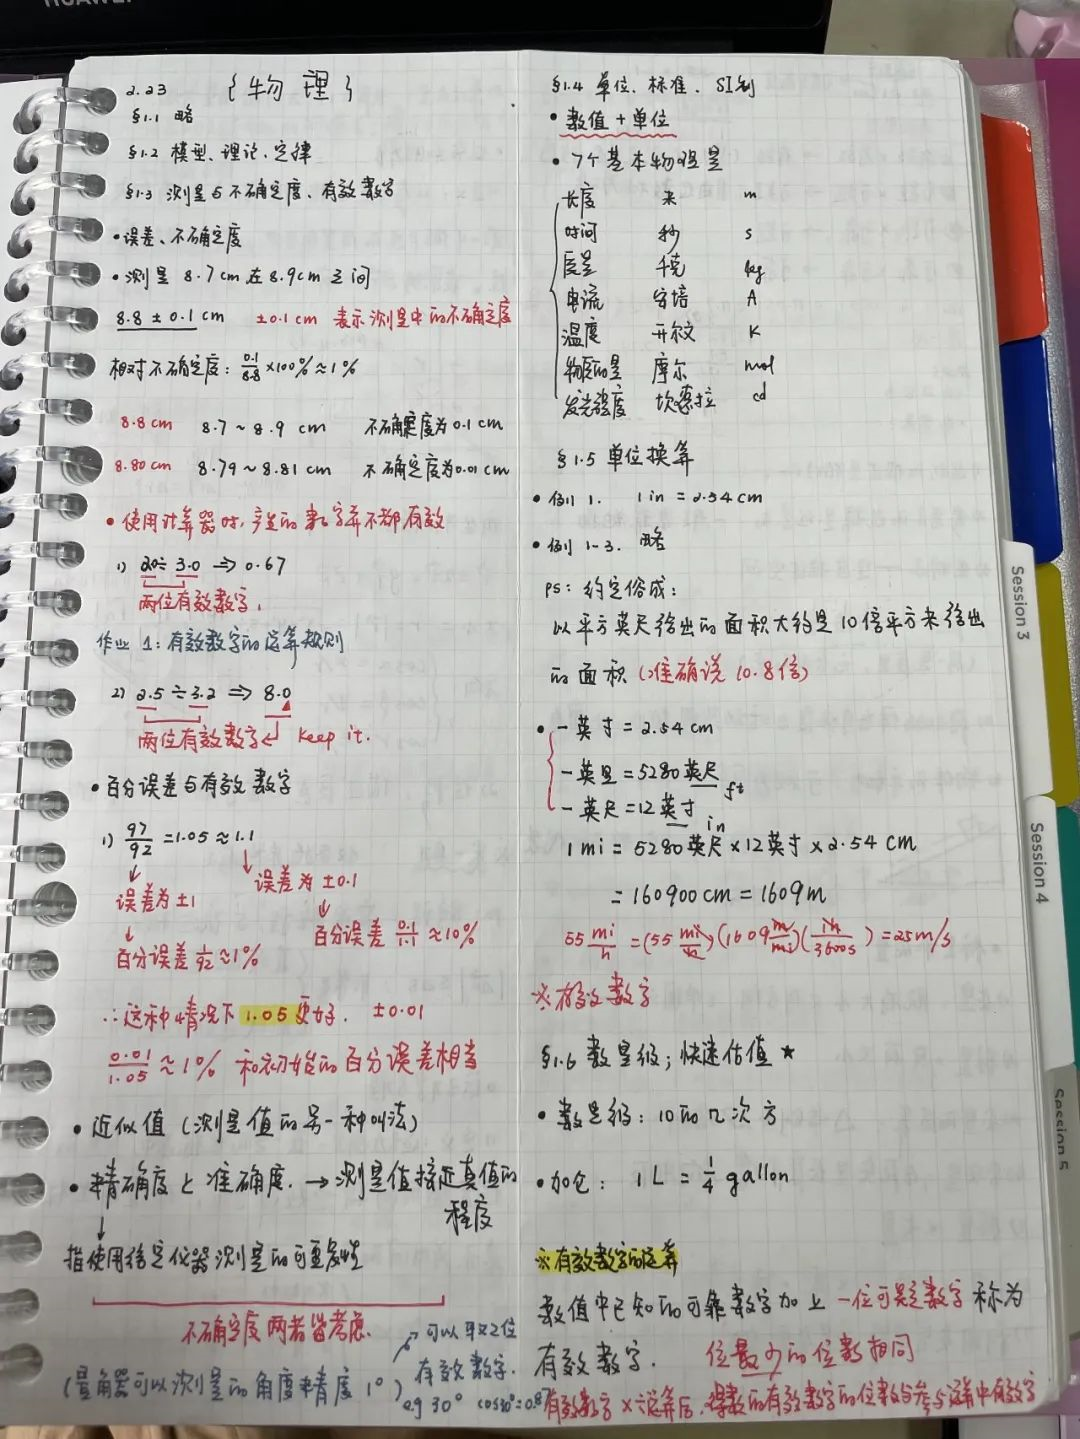 HUAWEI
2.23 {物理}
§1.1 略
§1.2 模型、理论、定律
§1.3 测量与不确定度、有效数字
•误差、不确定度
•测量 8.7cm 在 8.9cm 之间
8.8 ± 0.1 cm ±0.1 cm 表示测量中的不确定度
相对不确定度: 0.1/8.8 ×100% ≈ 1%
8.8 cm 8.7 ~ 8.9 cm 不确定度为 0.1 cm
8.80 cm 8.79 ~ 8.81 cm 不确定度为 0.01 cm
•使用计算器时, 产生的数字并不都有效
1) 2.0 ÷ 3.0 ⇒ 0.67
两位有效数字.
作业 1: 有效数字的运算规则
2) 2.5 ÷ 3.2 ⇒ 8.0
两位有效数字 keep it.
•百分误差与有效数字
1) 97/92 = 1.05 ≈ 1.1
误差为 ±1 误差为 ±0.1
百分误差 0.1/1.1 ≈ 10%
百分误差 1/92 ≈ 1%
∴这种情况下 1.05 更好. ±0.01
0.01/1.05 ≈ 1% 和初始的百分误差相当
•近似值 (测量值的另一种叫法)
•精确度与准确度. → 测量值接近真值的
程度
指使用给定仪器测量的可重复性
不确定度两者皆考虑.
(量角器可以测量的角度精度 1°) 可以取2位
有效数字.
eg 30° cos30°=0.87
§1.4 单位、标准、SI制
•数值 + 单位
•7个基本物理量
长度 米 m
时间 秒 s
质量 千克 kg
电流 安培 A
温度 开尔文 K
物质的量 摩尔 mol
发光强度 坎德拉 cd
§1.5 单位换算
•例 1. 1 in = 2.54 cm
•例 1-3. 略
ps: 约定俗成:
以平方英尺给出的面积大约是 10倍平方米给出
的面积 (准确说 10.8倍)
•一英寸 = 2.54 cm
一英里 = 5280英尺 ft
一英尺 = 12英寸 in
1 mi = 5280英尺 × 12英寸 × 2.54 cm
= 160900 cm = 1609 m
55 mi/h = (55 mi/h)(1609 m/mi)(1h/3600s) = 25 m/s
※有效数字
§1.6 数量级; 快速估值 ★
•数量级: 10的几次方
•加仑: 1 L = 1/4 gallon
※有效数字的运算
数值中已知的可靠数字加上一位可疑数字称为
有效数字. 位最少的位数相同
有效数字×六运算后, 得数的有效数字的位数与参与运算中有效数字
Session 3
Session 4
Session 5